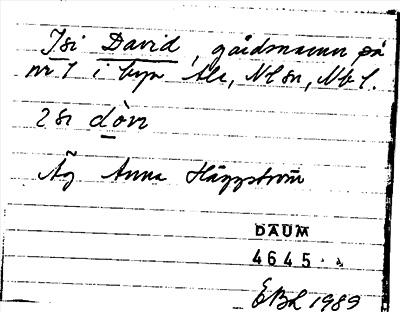 Isi David, gårdsmann, på
nr 1 i byn Ale, Nlsn, Nbt.
2si dòn
Åg Anna Häggström
DAUM
4645
EBL 1989